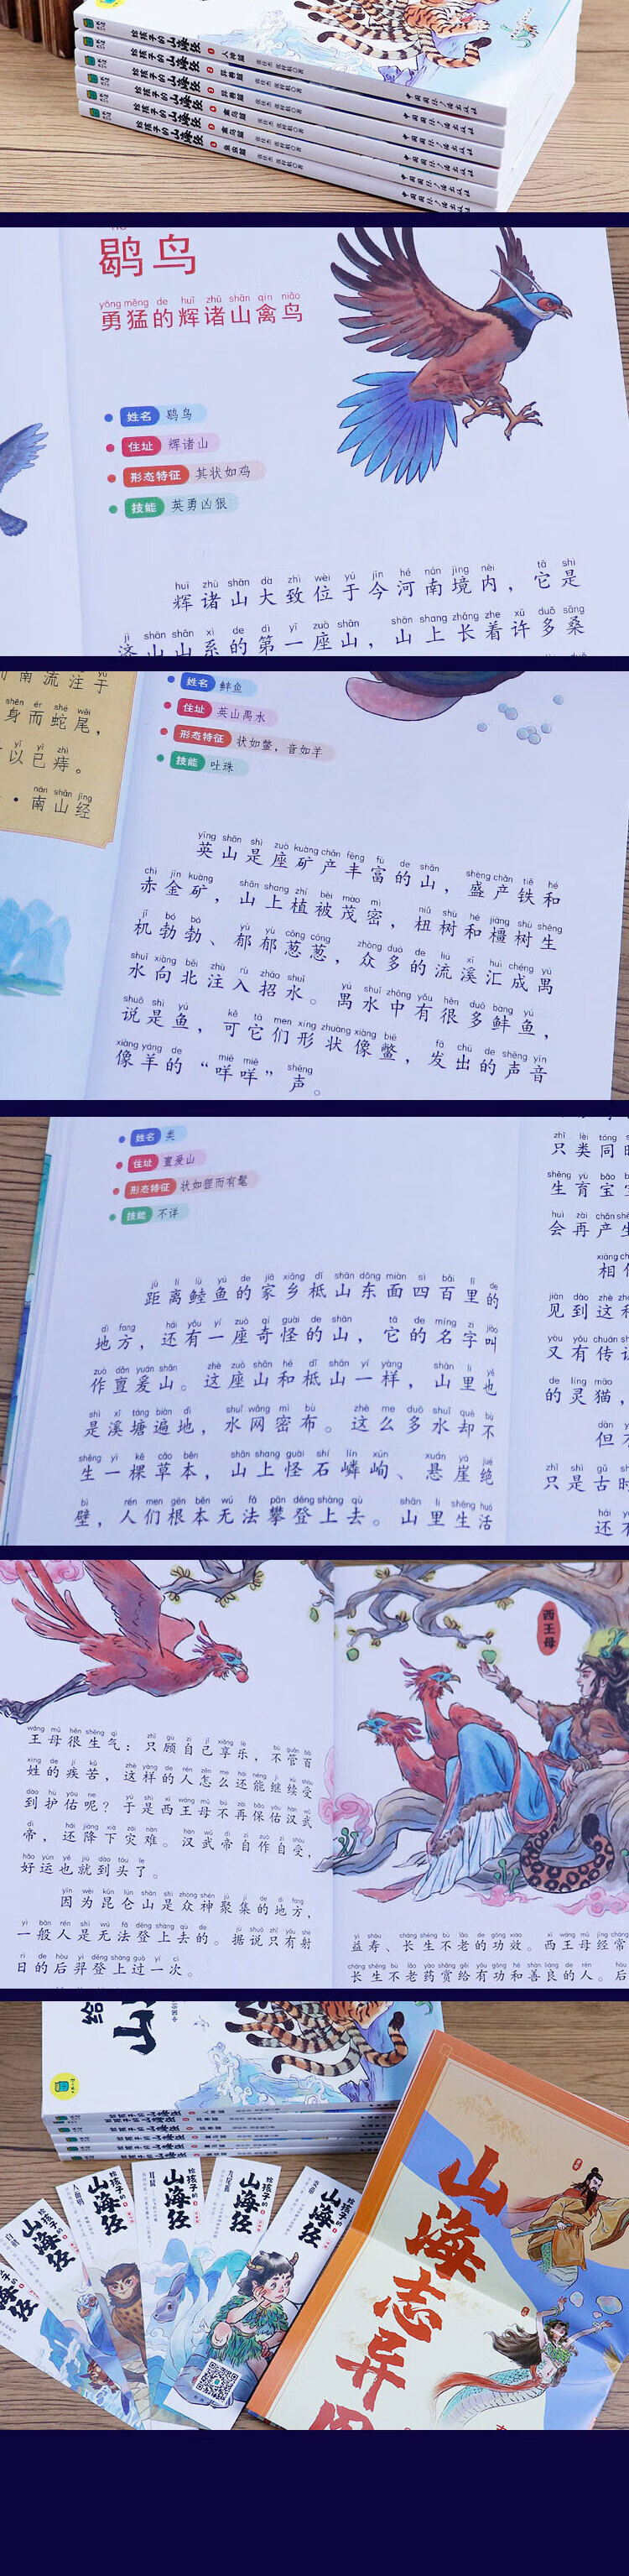 给孩子的山海经 1 人神篇 张佳杰 张梓航◎著 中国国际广播出版社
给孩子的山海经 2 异兽篇 张佳杰 张梓航◎著 中国国际广播出版社
给孩子的山海经 3 异兽篇 张佳杰 张梓航◎著 中国国际广播出版社
给孩子的山海经 禽鸟篇 张佳杰 张梓航◎著 中国国际广播出版社
给孩子的山海经 禽鸟篇 张佳杰 张梓航◎著 中国国际广播出版社
给孩子的山海经 鱼族篇 张佳杰 张梓航◎著 中国国际广播出版社
hé
鹖鸟
yǒng měng de huī zhū shān qín niǎo
勇猛的辉诸山禽鸟
姓名 鹖鸟
住址 辉诸山
形态特征 其状如鸡
技能 英勇凶狠
huī zhū shān dà zhì wèi yú jīn hé nán jìng nèi tā shì
辉诸山大致位于今河南境内，它是
jǐ shān shān xì de dì yī zuò shān shān shang zhǎng zhe xǔ duō sāng
济山山系的第一座山，山上长着许多桑
南流注于
shēn ér shé wěi
身而蛇尾，
yǐ yǐ zhì
以已痔。
nán shān jīng
·南山经
姓名 鲜鱼
住址 英山禺水
形态特征 状如鳖，音如羊
技能 吐珠
yīng shān shì zuò kuàng chǎn fēng fù de shān shèng chǎn tiě hé
英山是座矿产丰富的山，盛产铁和
chì jīn kuàng shān shang zhí bèi mào mì niǔ shù hé jiāng shù shēng
赤金矿，山上植被茂密，杻树和橿树生
jī bó bó yù yù cōng cōng zhòng duō de liú xī huì chéng yú
机勃勃、郁郁葱葱，众多的流溪汇成禺
shuǐ xiàng běi zhù rù zhāo shuǐ yú shuǐ zhōng yǒu hěn duō bàng yú
水向北注入招水。禺水中有很多鲜鱼，
shuō shì yú kě tā men xíng zhuàng xiàng biē fā chū de shēng yīn
说是鱼，可它们形状像鳖，发出的声音
xiàng yáng de miē miē shēng
像羊的“咩咩”声。
姓名 类
住址 亶爰山
形态特征 状如狸而有髦
技能 不详
jù lí lù yú de jiā xiāng dǐ shān dōng miàn sì bǎi lǐ de
距离鯥鱼的家乡柢山东面四百里的
dì fang hái yǒu yí zuò qí guài de shān tā de míng zi jiào
地方，还有一座奇怪的山，它的名字叫
zuò dǎn yuán shān zhè zuò shān hé dǐ shān yí yàng shān li yě
作亶爰山。这座山和柢山一样，山里也
shì xī táng biàn dì shuǐ wǎng mì bù zhè me duō shuǐ què bù
是溪塘遍地，水网密布。这么多水却不
shēng yì kē cǎo běn shān shang guài shí lín xún xuán yá jué
生一棵草本，山上怪石嶙峋、悬崖绝
bì rén men gēn běn wú fǎ pān dēng shàng qù shān li shēng huó
壁，人们根本无法攀登上去。山里生活
zhǐ lèi tóng s
只类同时
shēng yù bǎo b
生育宝宝
huì zài chǎn shē
会再产生
xiāng ch
相传
jiàn dào zhè zh
见到这种
yòu yǒu chuán shu
又有传说
de líng māo
的灵猫，
dàn y
但不
zhǐ shì gǔ sh
只是古时
hái y
还有
西王母
wáng mǔ hěn shēng qì zhǐ gù zì jǐ xiǎng lè bù guǎn bǎi
王母很生气：只顾自己享乐，不管百
xìng de jí kǔ zhè yàng de rén zěn me hái néng jì xù shòu
姓的疾苦，这样的人怎么还能继续受
dào hù yòu ne yú shì xī wáng mǔ bú zài bǎo yòu hàn wǔ
到护佑呢？于是西王母不再保佑汉武
dì hái jiàng xià zāi nàn hàn wǔ dì zì zuò zì shòu
帝，还降下灾难。汉武帝自作自受，
hǎo yùn yě jiù dào tóu le
好运也就到头了。
yīn wèi kūn lún shān shì zhòng shén jù jí de dì fang
因为昆仑山是众神聚集的地方，
yì bān rén shì wú fǎ dēng shàng qù de jù shuō zhǐ yǒu shè
一般人是无法登上去的。据说只有射
rì de hòu yì dēng shàng guò yí cì
日的后羿登上过一次。
yì shòu cháng shēng bù lǎo de gōng xiào xī wáng mǔ jīng cháng
益寿、长生不老的功效。西王母经常
cháng shēng bù lǎo yào shǎng gěi yǒu gōng hé shàn liáng de rén hòu
长生不老药赏给有功和善良的人。后
给
山
给孩子的山海经 人神篇
给孩子的山海经
给孩子的山海经
给孩子的山海经
白鵺
山海经
人面鸮
给孩子的山海经
耳鼠
给孩子的山海经
九尾狐
给孩子的山海经
给孩子的山海经
山海志异图